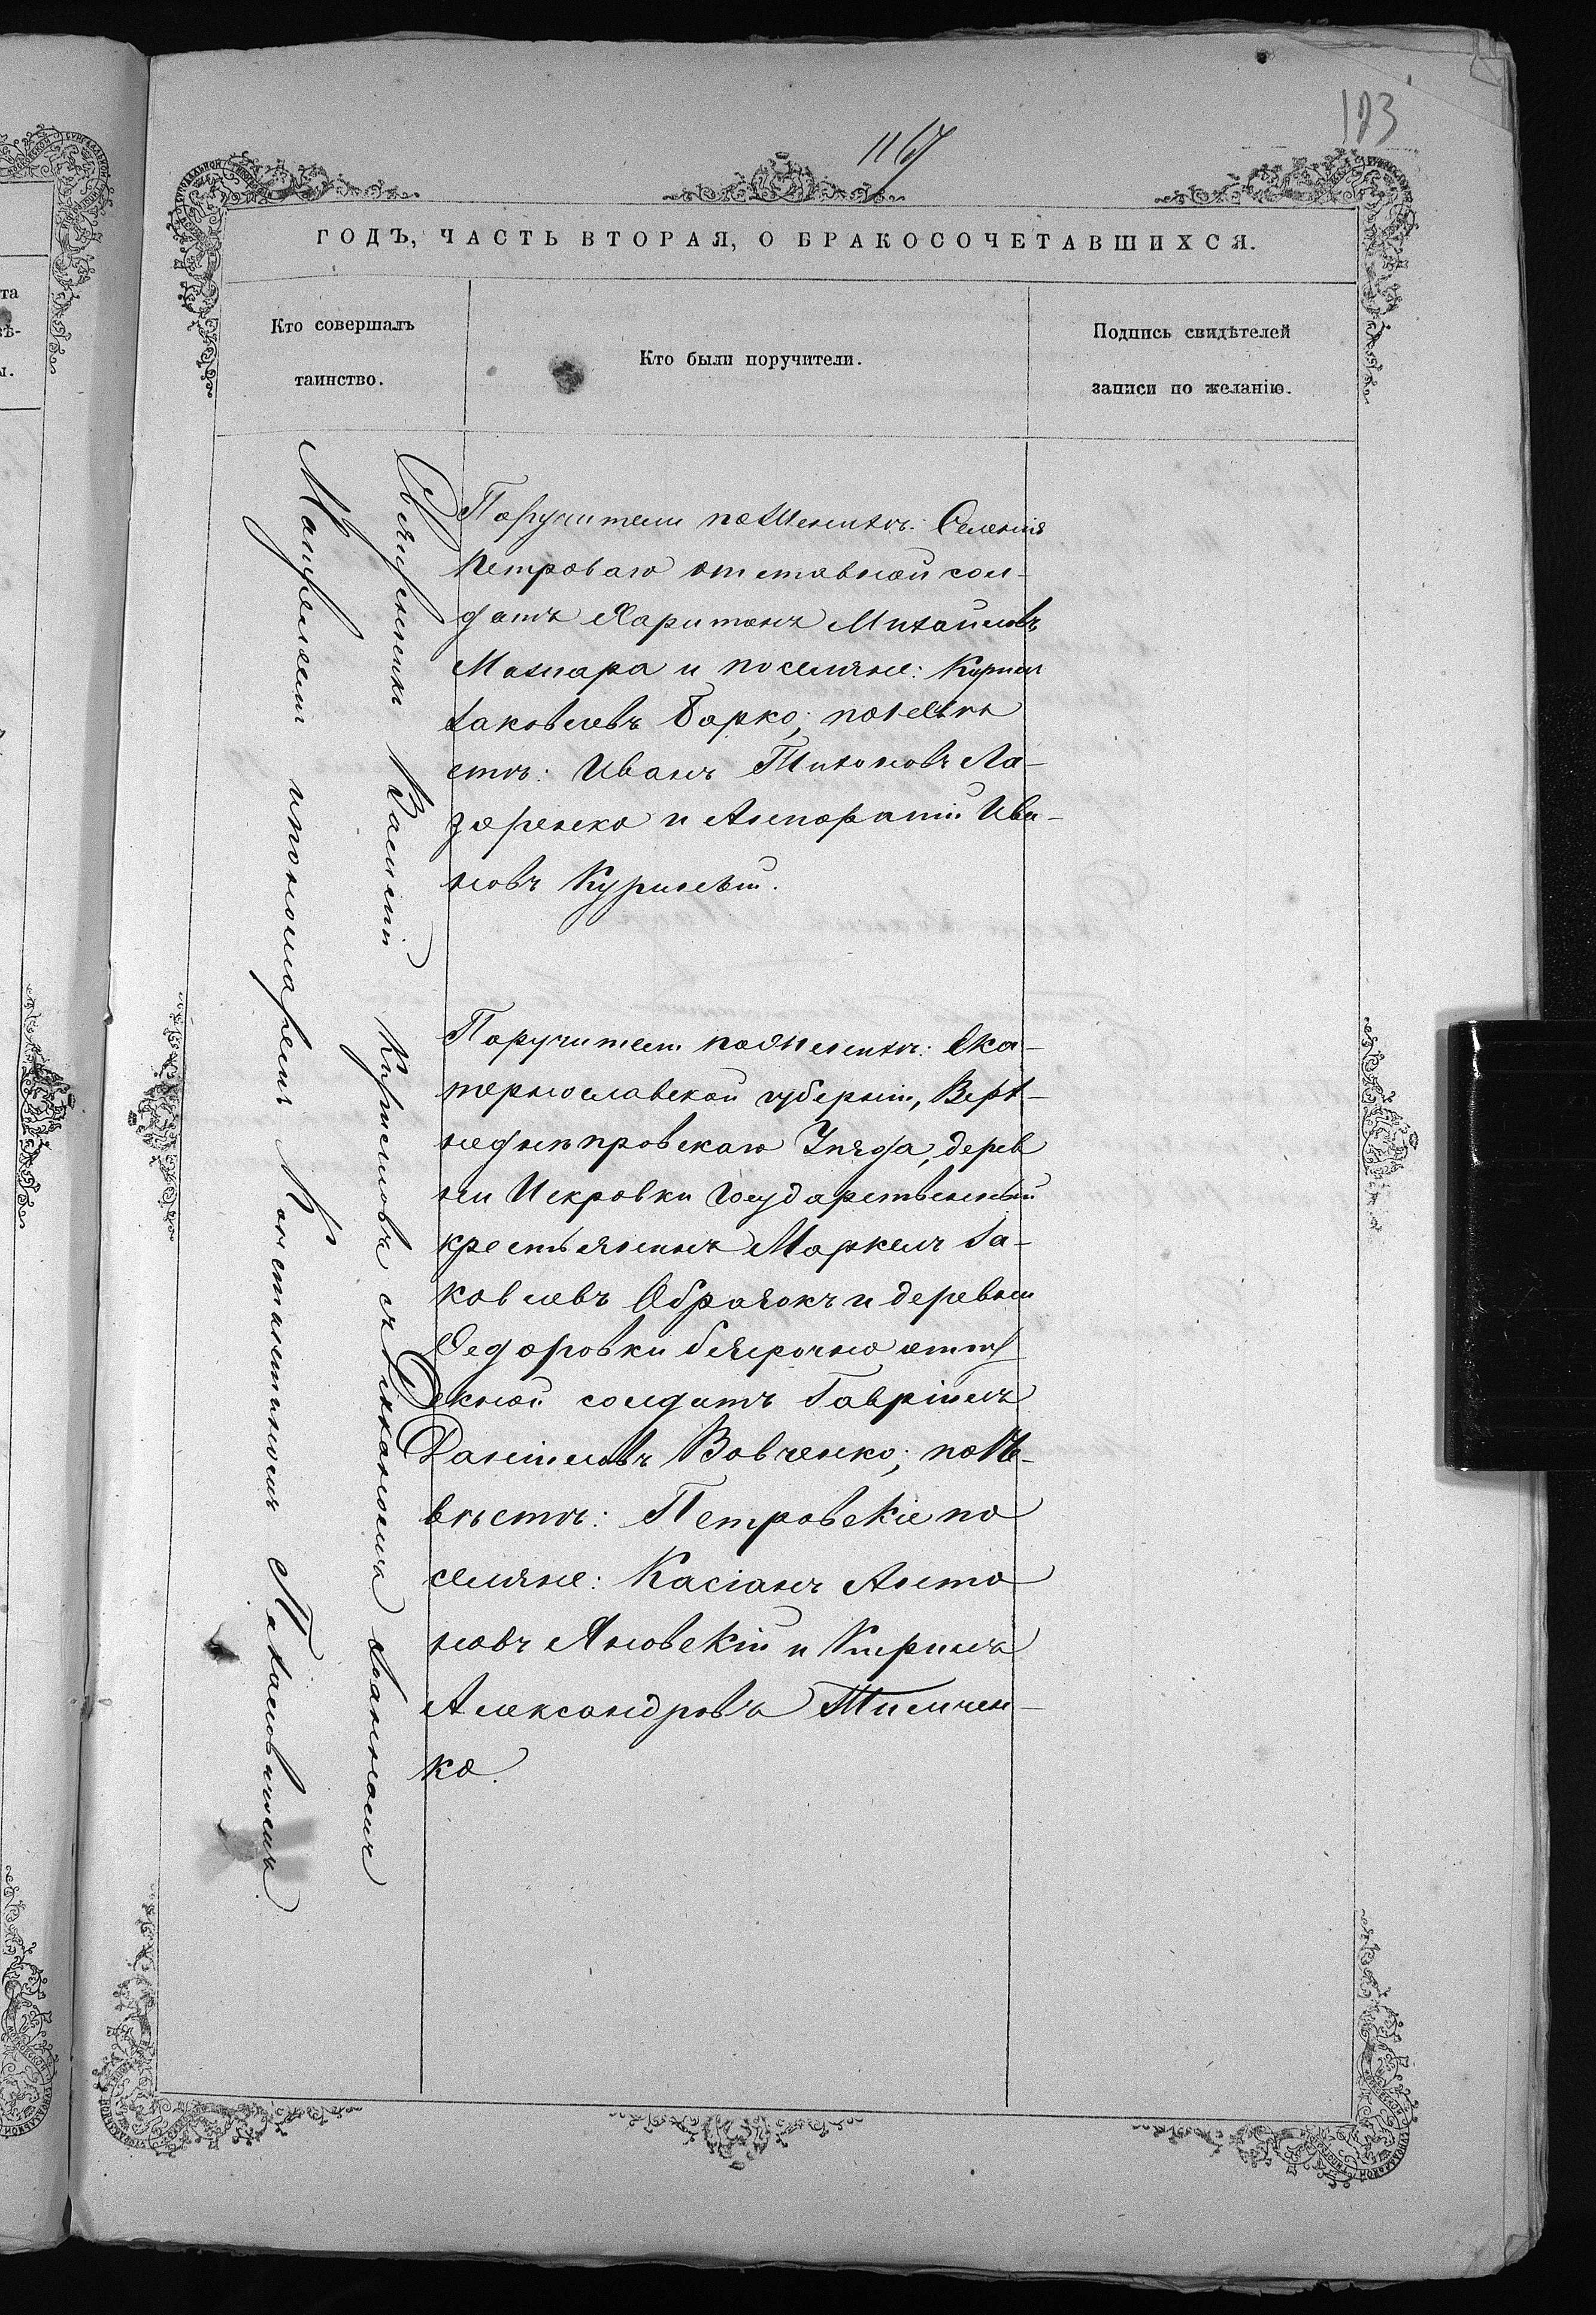 123
1167
ГОДЪ, ЧАСТЬ ВТОРАЯ, О БРАКОСОЧЕТАВШИХСЯ.
Кто совершалъ
таинство.
Кто были поручители.
Подпись свидѣтелей
записи по желанію.
Священникъ Василій Кириловъ съ діакономъ Іоанномъ
и пономаремъ Константиномъ
Поручители по Женихѣ: Селенія
Петроваго отставной сол-
датъ Харитонъ Михайловъ
и поселяне: Кирилъ
Іаковлевъ Барко; по Невѣ
стѣ: Иванъ Тихоновъ Ла-
заренко и Ива-
новъ
Поручители по Женихѣ: Ека-
теринославской губерніи, Верх-
неднѣпровскаго Уѣзда, дерев
ни Искровки Государственный
крестьянинъ Маркелъ Іа-
ковлевъ и деревни
Федоровки безсрочно отпу
скной солдатъ Гавріилъ
Даніиловъ Вовченко; по Не-
вѣстѣ: Петровскіе по
селяне: Касіанъ Анто
новъ Яновскій и Кирилъ
Александровъ Тимчен-
ко.
та
вѣ-
ы.